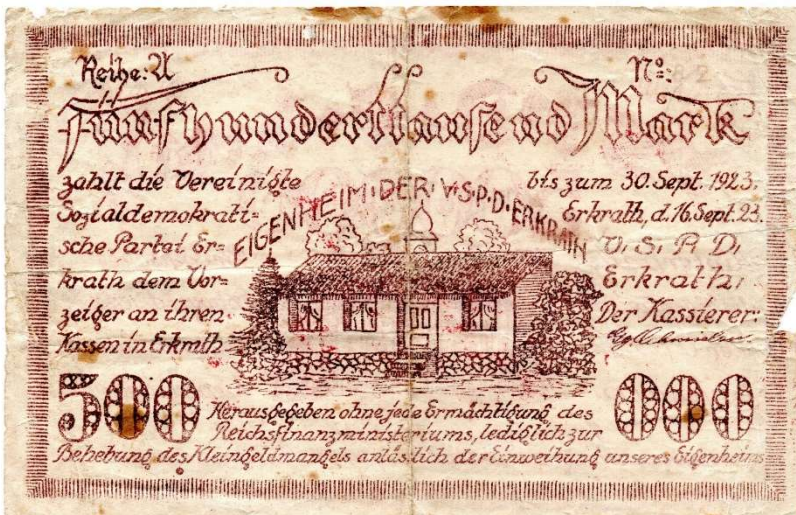 Reihe: A
No:
Fünfhunderttausend Mark
zahlt die Vereinigte
Sozialdemokrati=
sche Partei Er=
krath dem Vor=
zeiger an ihren
Kassen in Erkrath
EIGENHEIM·DER·V·S·P·D·ERKRATH
bis zum 30. Sept. 1923.
Erkrath, d. 16. Sept. 23.
V. S. P. D.
Erkrath,
Der Kassierer:
500 000
Herausgegeben ohne jede Ermächtigung des
Reichsfinanzministeriums, lediglich zur
Behebung des Kleingeldmangels anlässlich der Einweihung unseres Eigenheims